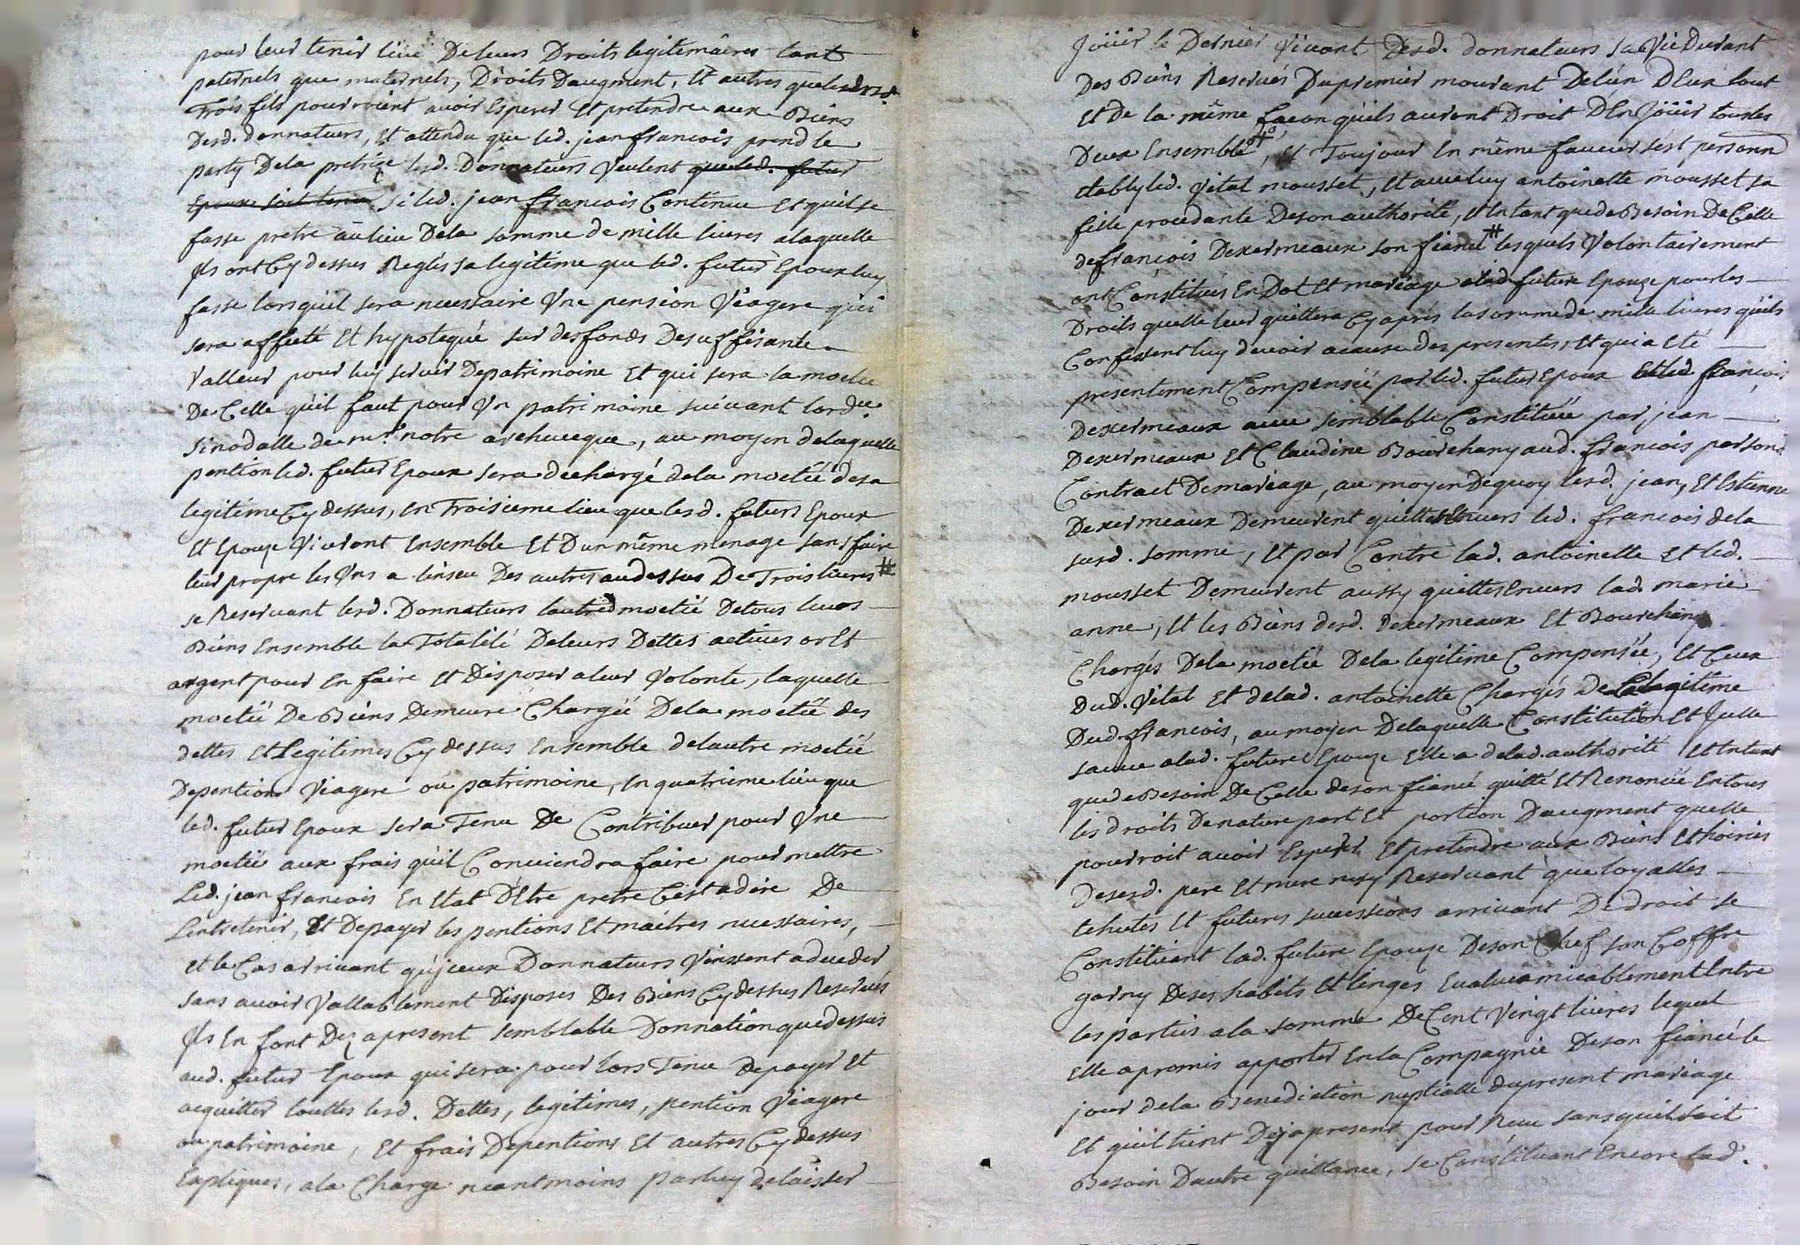 pour leur tenir lieu De leurs Droits legitimaires tant
paternels que maternels, Droits Daugment, Et autres que lesd.
Trois fils pourroient avoir Esperer Et pretendre aux Biens
Desd. donnateurs, Et attendu que led. jean francois prend le
party De la pretrize lesd. Donnateurs Veulent que led. futur
Epoux soit tenu si led. jean francois Continue Et quil se
fasse pretre au lieu De la somme de mille livres a laquelle
Ils ont Cy dessus Reglés sa legitime que led. futur Epoux luy
fasse lorsquil sera necessaire Vne pension Viagere qui
sera affecté Et hypotequé sur des fonds De suffisante
Valleur pour luy servir De patrimoine Et qui sera la moetie
De Celle qu'il faut pour Vn patrimoine suivant lord.ce
Sinodalle de m.gr notre archeveque, au moyen de laquelle
pention led. futur Epoux sera dechargé de la moetié de sa
legitime Cy dessus, En Troisieme lieu que lesd. futurs Epoux
Et Epouze Vivront Ensemble Et D'un même menage sans faire
leur propre les Vns a l'inseu Des autres au dessus De Trois livres #
se Reservant lesd. Donnateurs l'autre moetié De tous leurs
Biens Ensemble la Totalité De leurs Dettes actives or Et
argent pour En faire Et Disposer a leur Volonté, laquelle
moetié De Biens Demeure Chargée De la moetié des
dettes Et legitimes Cy dessus Ensemble de lautre moetié
De pention Viagere ou patrimoine, En quatrieme lieu que
led. futur Epoux sera Tenu De Contribuer pour Vne
moetié aux frais qu'il Conviendra faire pour mettre
Led. jean francois En Etat D'Etre pretre C'est a dire De
L'entretenir, Et De payer les pentions Et maitres necessaires,
Et le Cas arrivant qu'jceux Donnateurs Vinssent a deceder
sans avoir Vallablement Disposés Des Biens Cy dessus Reservés
Ils En font Dez a present semblable Donnation que dessus
aud. futur Epoux qui sera pour lors Tenu De payer Et
acquitter touttes lesd. Dettes, legitimes, pention Viagere
ou patrimoine, Et frais De pentions Et autres Cy dessus
Expliqués, a la Charge neantmoins par luy de laisser
Joüir le Dernier Vivant Desd. donnateurs sa Vie Durant
Des Biens Reservés Du premier mourant De l'un D'Eux tout
Et De la même facon qu'ils auront Droit D'En Joüir tous les
Deux Ensemble, Et Toujour En même faveur s'est personn
Etably led. Vital mousset, Et avec luy antoinette mousset sa
fille procedante De son authorité, Et En tant que de Besoin De Celle
de francois Dexermeaux son fiancé # lesquels Volontairement
ont Constitués En Dot Et mariage a lad. future Epouze pour les
Droits quelle leur quittera Cy après la somme de mille livres qu'ils
Confessent luy devoir a cause des presentes, Et qui a Eté
presentement Compensée par led. futur Epoux Et led. francois
Dexermeaux avec semblable Constituée par jean
Dexermeaux Et Claudine Bourchany aud. francois par son
Contract De mariage, au moyen De quoy lesd. jean, Et Estienne
Dexermeaux Demeurent quittes Envers led. francois de la
susd. somme, Et par Contre lad. antoinette Et led.
mousset Demeurent aussy quittes Envers lad. marie
anne, Et les Biens desd. Dexermeaux Et Bourchany
Chargés De la moetié De la legitime Compensée, Et Ceux
Dud. Vital Et de lad. antoinette Chargés De la legitime
Dud. francois, au moyen De laquelle Constitution Et Icelle
sauve a lad. future Epouze Elle a de lad. authorité Et En tant
que de Besoin De Celle de son fiancé quitté Et Renoncé En tous
les droits De nature part Et portion Daugment quelle
pourroit avoir Esperer Et pretendre aux Biens Et hoiries
De sesd. pere Et mere ny Reservant que loyalles
Echutes Et futures successions arrivant De droit se
Constituant lad. future Epouze De son Chef son Coffre
garny De ses habits Et linges Evalué amicablement Entre
les parties a la somme De Cent Vingt livres lequel
Elle a promis apporter En la Compagnie De son fiancé le
jour de la Benediction nuptialle du present mariage
Et qu'il tient Dez a present pour Receu sans quil soit
Besoin Dautre quittance, se Constituant Encore lad.